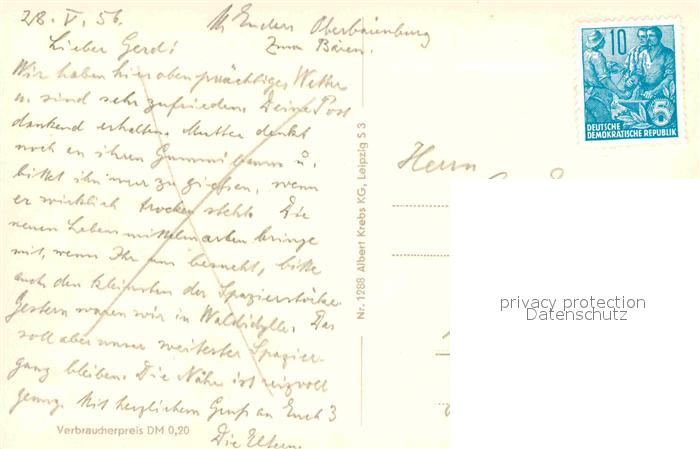 28. V. 56.
Oberbärenburg
Zum Bären.
Lieber Gerd!
Wir haben hier oben prächtiges Wetter
u. sind sehr zufrieden. Deine Post
dankend erhalten. Mutter denkt
noch an ihren Gummibaum u.
bittet ihn nur zu gießen, wenn
er wirklich trocken steht. Die
neuen Lebensmittelmarken bringe
mit, wenn Ihr uns besucht, bitte
auch den kleinsten der Spazierstöcke.
Gestern waren wir in Waldidylle. Das
soll aber unser weitester Spazier-
gang bleiben. Die Nähe ist reizvoll
genug. Mit herzlichem Gruß an Euch 3
Die Eltern.
Verbraucherpreis DM 0,20
Nr. 1288 Albert Krebs KG, Leipzig S 3
10
5
DEUTSCHE
DEMOKRATISCHE REPUBLIK
Herrn
privacy protection
Datenschutz